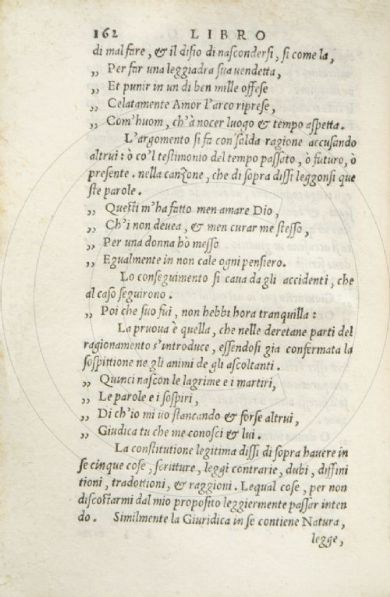 162 LIBRO
di mal fare, & il disio di nascondersi, si come la,
„ Per far una leggiadra sua vendetta,
„ Et punir in un dì ben mille offese
„ Celatamente Amor l'arco riprese,
„ Com'huom, ch'à nocer luogo & tempo aspetta.
L'argomento si fa con salda ragione accusando
altrui: ò co'l testimonio del tempo passato, ò futuro, ò
presente. nella canzone, che di sopra dissi leggonsi que
ste parole.
„ Questi m'ha fatto men amare Dio,
„ Ch'i non deuea, & men curar me stesso,
„ Per una donna hò messo
„ Egualmente in non cale ogni pensiero.
Lo conseguimento si caua dagli accidenti, che
al caso seguirono.
„ Poi che suo fui, non hebbi hora tranquilla:
La pruoua è quella, che nelle deretane parti del
ragionamento s'introduce, essendosi gia confermata la
sospittione ne gli animi de gli ascoltanti.
„ Quinci nascon le lagrime e i martiri,
„ Le parole e i sospiri,
„ Di ch'io mi uo stancando & forse altrui,
„ Giudica tu che me conosci & lui.
La constitutione legitima dissi di sopra hauere in
se cinque cose, scritture, leggi contrarie, dubi, diffini
tioni, tradottioni, & raggioni. Lequal cose, per non
discostarmi dal mio proposito leggiermente passar inten
do. Similmente la Giuridica in se contiene Natura,
legge,